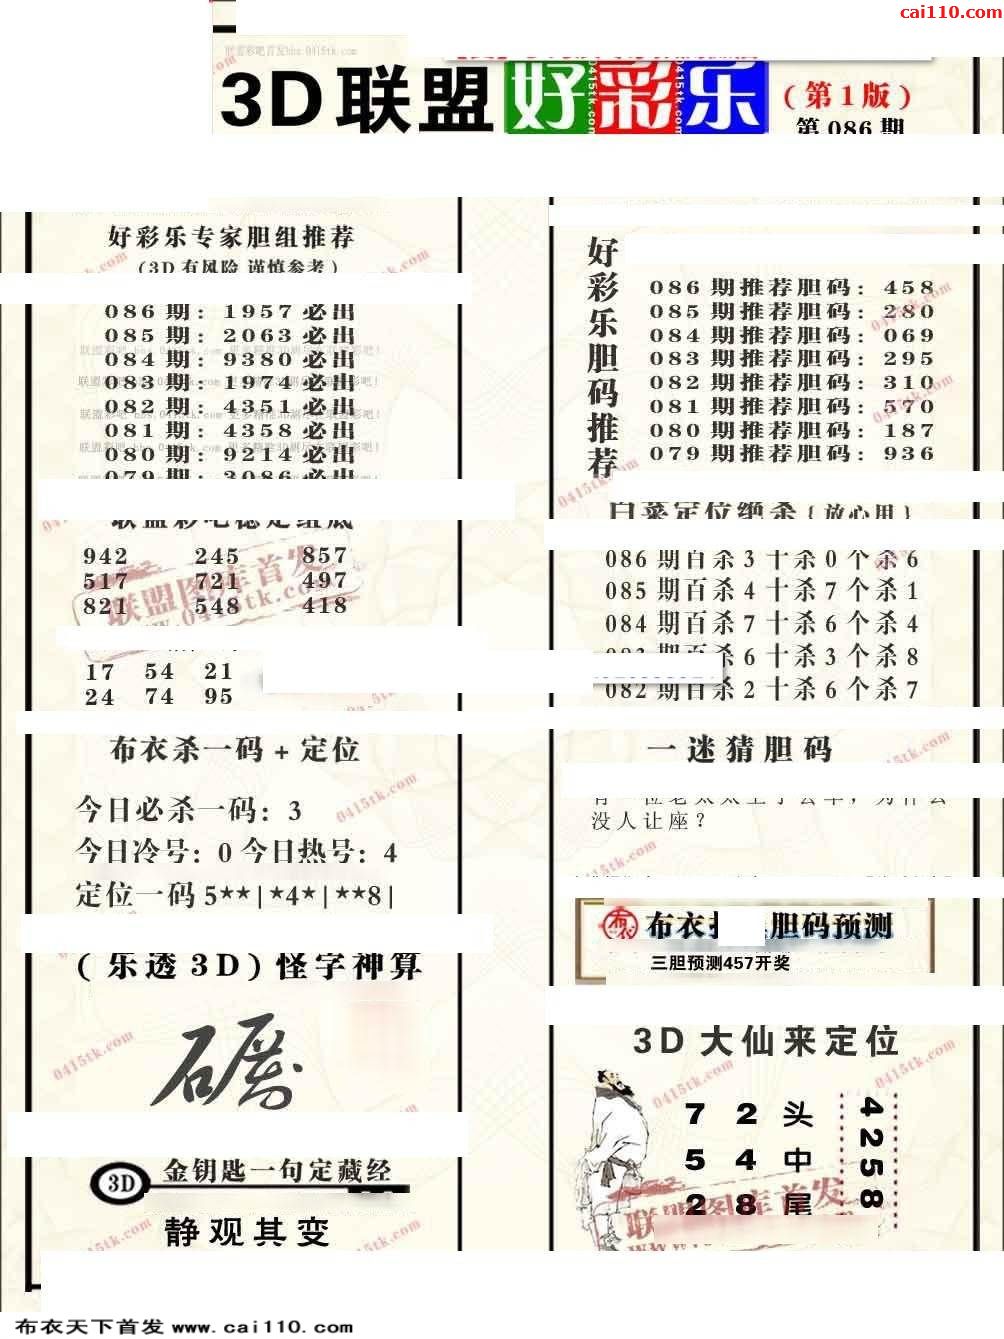 cai110.com
3D联盟 好彩乐 (第1版)
第 086 期
好彩乐专家胆组推荐
(3D有风险 谨慎参考)
086期: 1957必出
085期: 2063必出
084期: 9380必出
083期: 1974必出
082期: 4351必出
081期: 4358必出
080期: 9214必出
079期: 3086必出
942 245 857
517 721 497
821 548 418
17 54 21
24 74 95
布衣杀一码+定位
今日必杀一码: 3
今日冷号: 0 今日热号: 4
定位一码 5**|*4*|**8|
(乐透3D)怪字神算
礪
3D 金钥匙一句定藏经
静观其变
好彩乐胆码推荐
086期推荐胆码: 458
085期推荐胆码: 280
084期推荐胆码: 069
083期推荐胆码: 295
082期推荐胆码: 310
081期推荐胆码: 570
080期推荐胆码: 187
079期推荐胆码: 936
白菜定位绝杀{放心用}
086期百杀3十杀0个杀6
085期百杀4十杀7个杀1
084期百杀7十杀6个杀4
杀6十杀3个杀8
082期百杀2十杀6个杀7
一迷猜胆码
没人让座?
布衣 胆码预测
三胆预测457开奖
3D大仙来定位
7 2 头
5 4 中
2 8 尾
4258
联盟图库首发
布衣天下首发 www.cai110.com